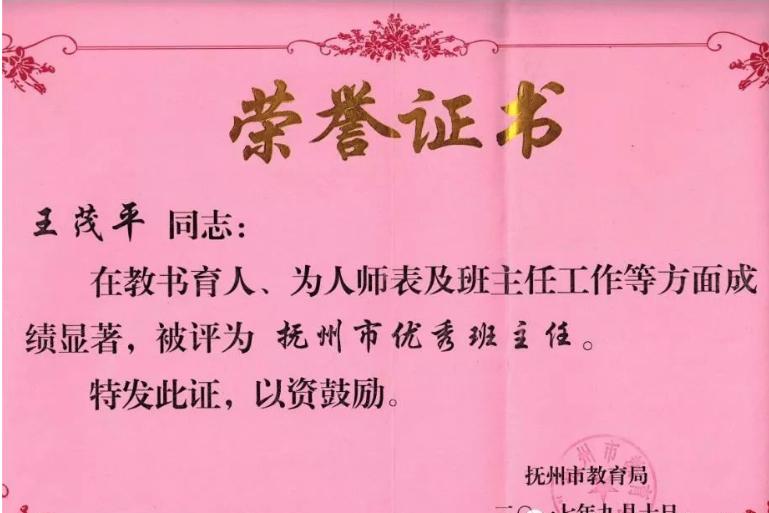 荣誉证书
王茂平 同志：
在教书育人、为人师表及班主任工作等方面成
绩显著，被评为 抚州市优秀班主任。
特发此证，以资鼓励。
抚州市教育局
二〇一七年九月十日